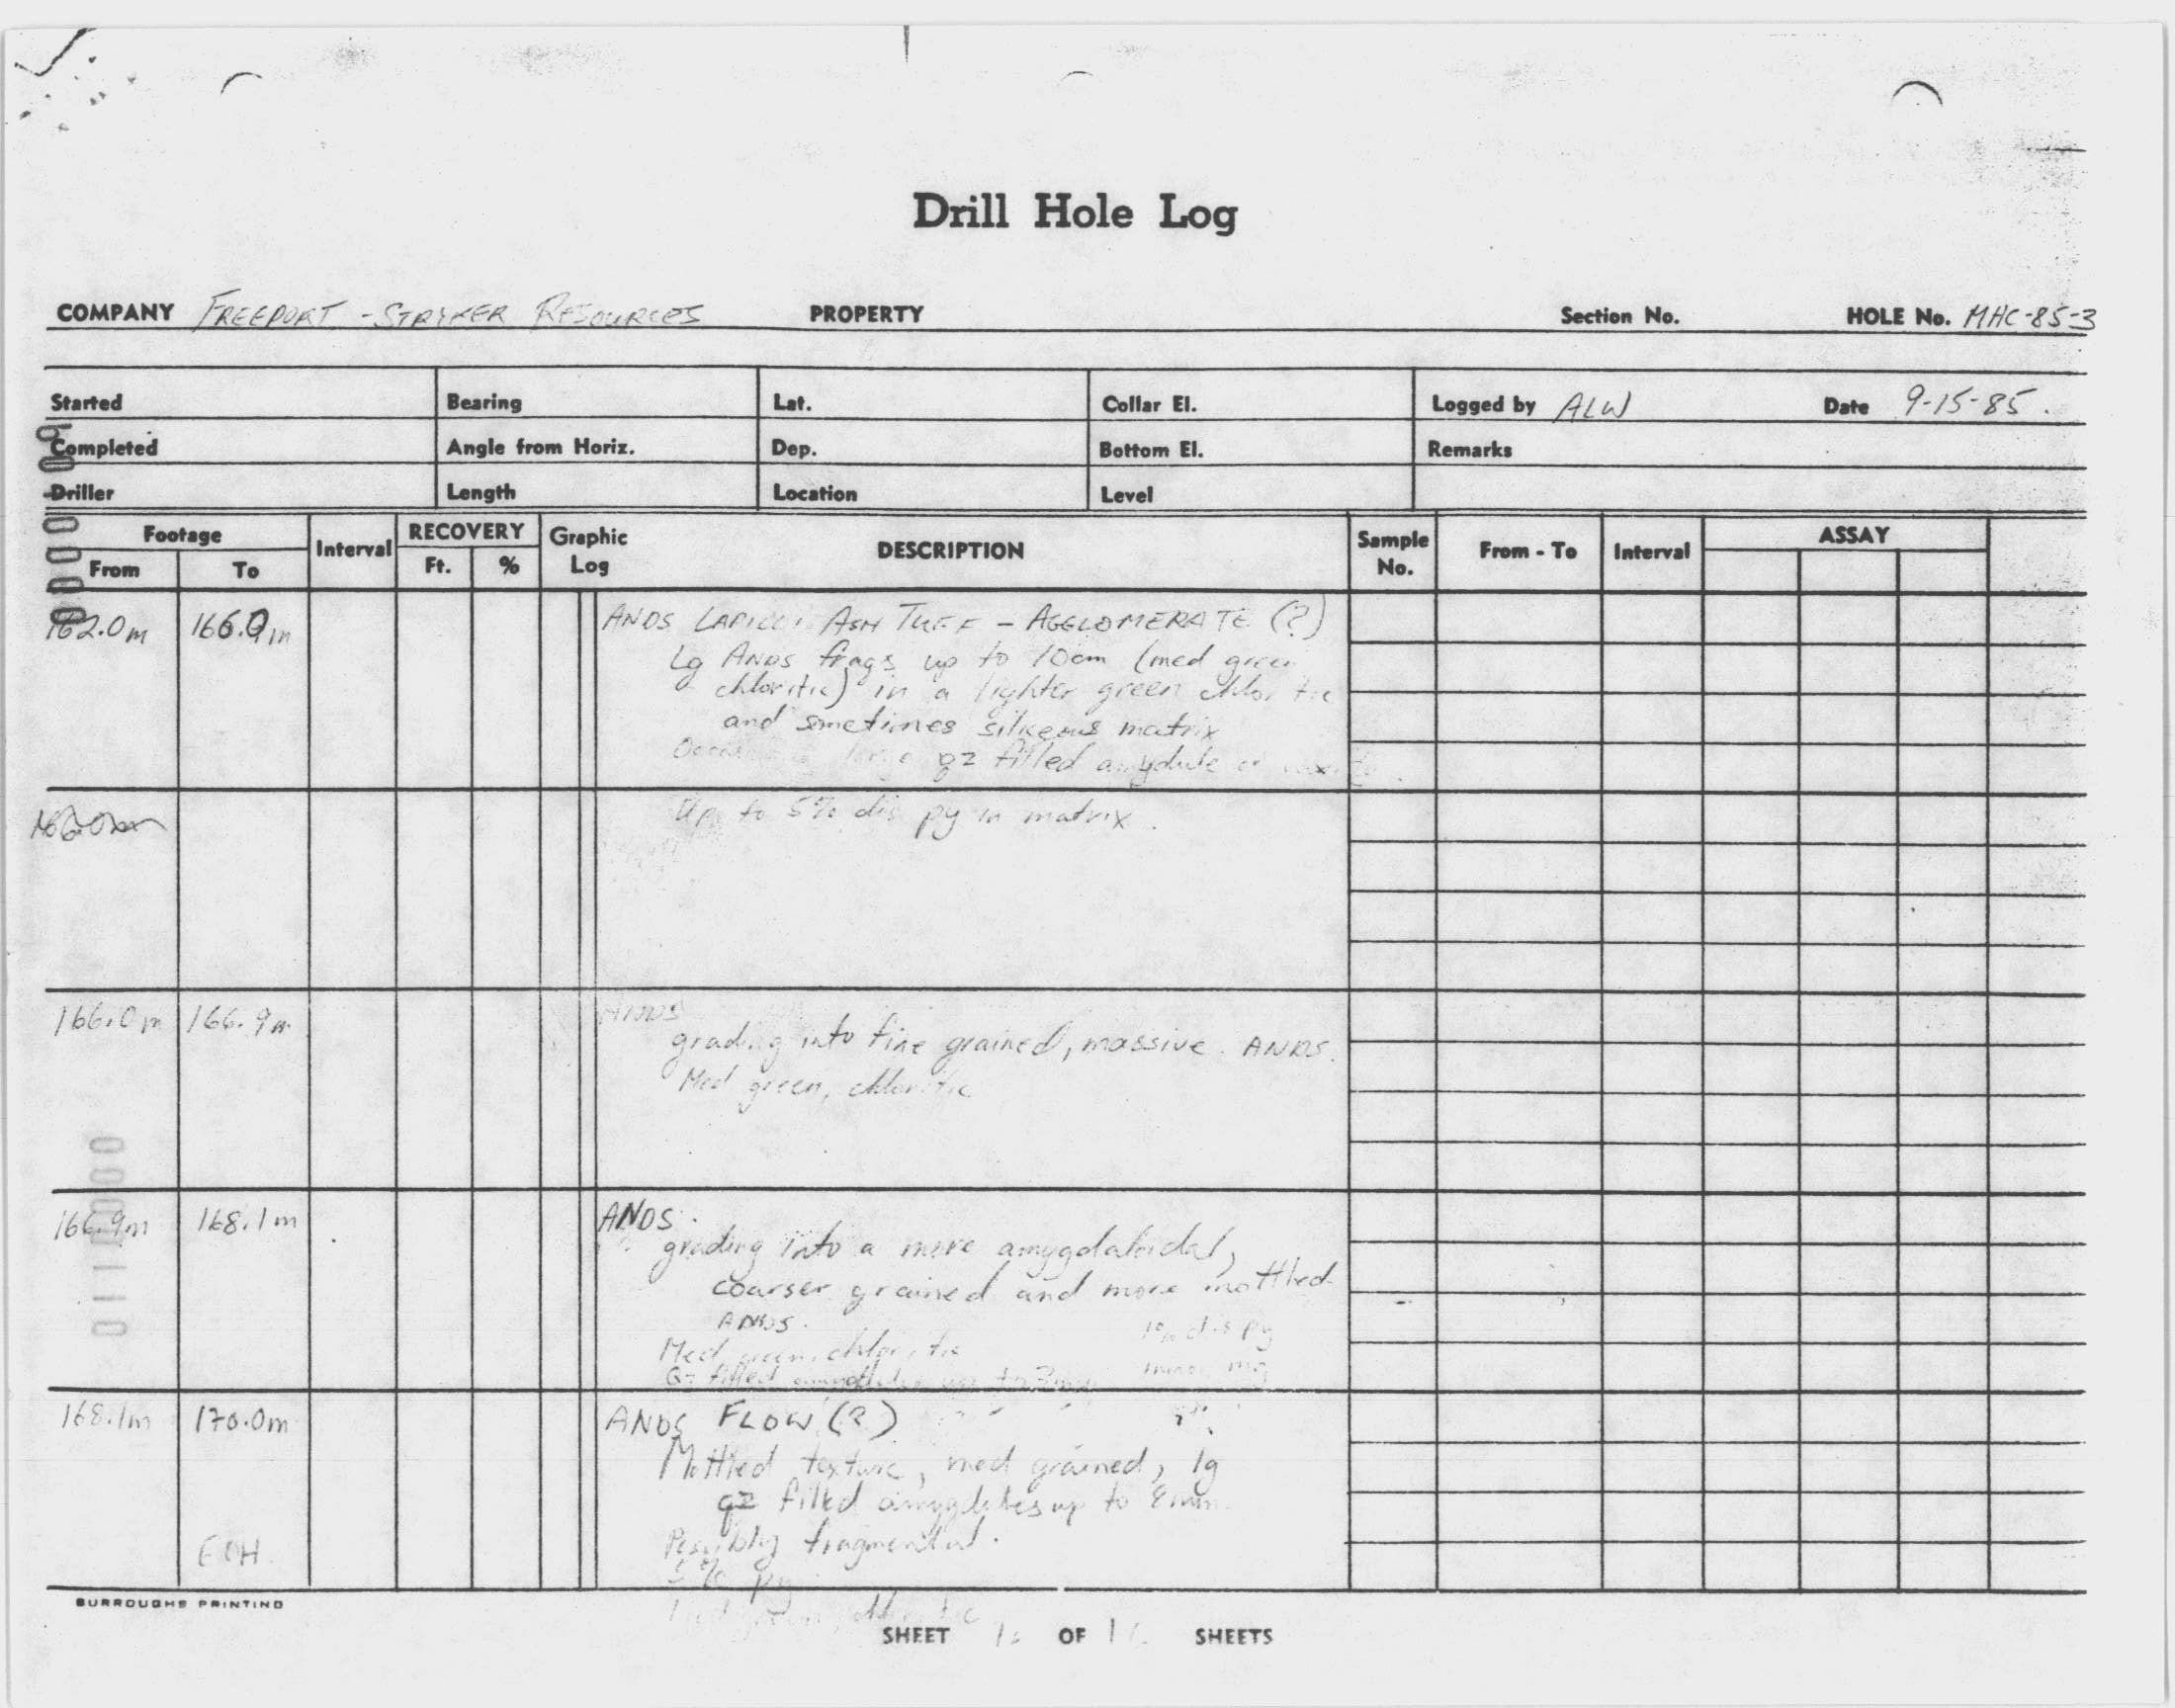 Drill Hole Log
COMPANY FREEPORT - STRYKER RESOURCES PROPERTY Section No. HOLE No. MHC-85-3
Started Bearing Lat. Collar El. Logged by ALW Date 9-15-85.
Completed Angle from Horiz. Dep. Bottom El. Remarks
Driller Length Location Level
Footage Interval RECOVERY Graphic Log DESCRIPTION Sample No. From - To Interval ASSAY
From To Ft. %
162.0m 166.0m ANDS LAPILLI ASH TUFF - AGGLOMERATE (?)
Lg ANDS frags up to 10cm (med green
chloritic) in a lighter green chloritic
and sometimes siliceous matrix
large qz filled amydule or
166.0m Up to 5% dis py in matrix.
166.0m 166.9m ANDS
grading into fine grained, massive ANDS.
Med green, chloritic
166.9m 168.1m ANDS.
grading into a more amygdaloidal,
coarser grained and more mottled
ANDS. 1% dis py
Med green, chloritic minor mg
Qz filled amygdules up to 3mm
168.1m 170.0m ANDS FLOW (?)
Mottled texture, med grained, lg
qz filled amygdules up to 8mm.
Possibly fragmental.
EOH
5% py
green, chloritic
BURROUGHS PRINTING
SHEET OF SHEETS